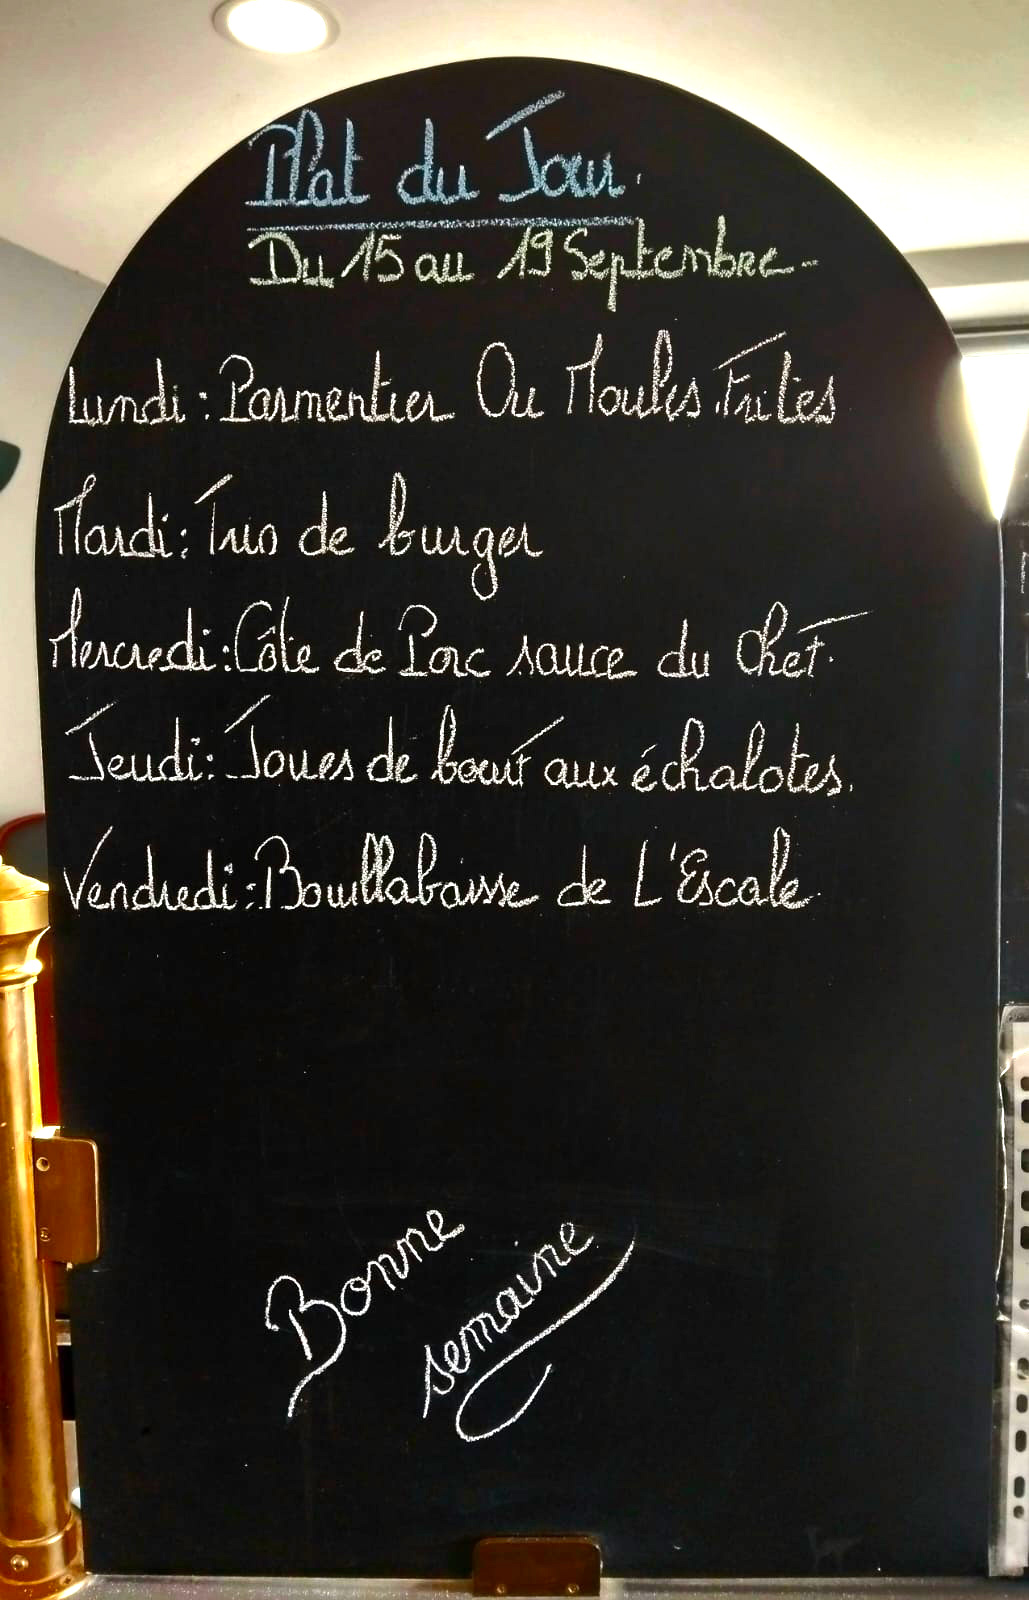 Plat du Jour.
Du 15 au 19 Septembre
Lundi : Parmentier Ou Moules Frites
Mardi : Trio de burger
Mercredi : Côte de Porc sauce du Chef.
Jeudi : Joues de bœuf aux échalotes.
Vendredi : Bouillabaisse de L'Escale
Bonne
semaine